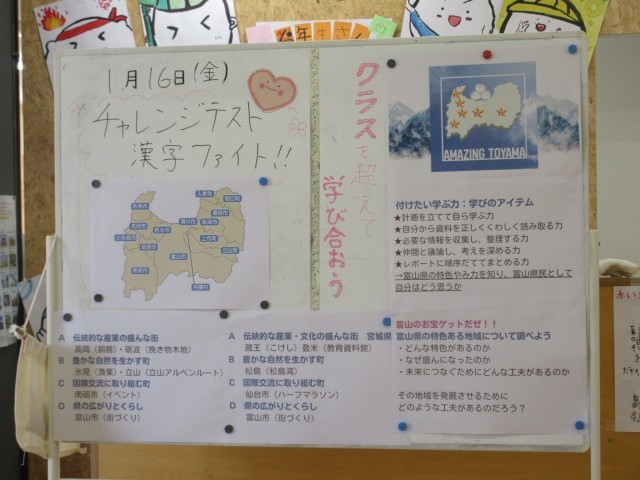 1月16日(金)
チャレンジテスト
漢字ファイト!!
クラスを超えて
学び合おう
AMAZING TOYAMA
付けたい学ぶ力：学びのアイテム
★計画を立てて自ら学ぶ力
★自分から資料を正しくくわしく読み取る力
★必要な情報を収集し、整理する力
★仲間と議論し、考えを深める力
★レポートに順序だててまとめる力
→富山県の特色やみ力を知り、富山県民として
自分はどう思うか
氷見市
高岡市
射水市
小矢部市
砺波市
南砺市
富山市
舟橋村
滑川市
魚津市
黒部市
入善町
朝日町
上市町
立山町
A 伝統的な産業の盛んな街
高岡（銅器）・砺波（挽き物木地）
B 豊かな自然を生かす町
氷見（漁業）・立山（立山アルペンルート）
C 国際交流に取り組む町
南砺市（イベント）
D 県の広がりとくらし
富山市（街づくり）
A 伝統的な産業・文化の盛んな街 宮城県
蔵王（こけし）登米（教育資料館）
B 豊かな自然を生かす町
松島（松島湾）
C 国際交流に取り組む町
仙台市（ハーフマラソン）
D 県の広がりとくらし
富山市（街づくり）
富山のお宝ゲットだぜ！！
富山県の特色ある地域について調べよう
・どんな特色があるのか
・なぜ盛んになったのか
・未来につなぐためにどんな工夫があるのか
その地域を発展させるために
どのような工夫があるのだろう？